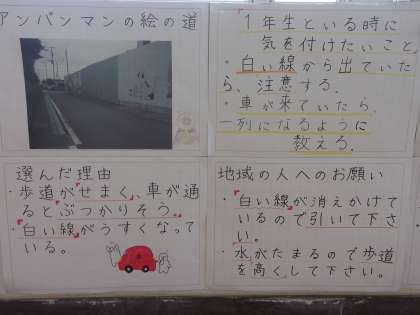 アンパンマンの絵の道
「1年生といる時に
気を付けたいこと」
・白い線から出ていた
ら、注意する。
・車が来ていたら、
一列になるように
教える。
選んだ理由
・歩道がせまく、車が通
るとぶつかりそう。
・白い線がうすくなって
いる。
地域の人へのお願い
・白い線が消えかけて
いるので引いて下さ
い。
・水がたまるので歩道
を高くして下さい。